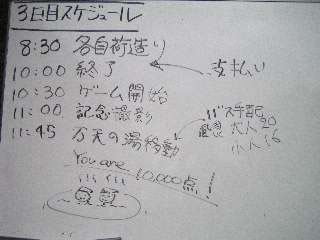 3日目スケジュール
8:30 各自荷造り
10:00 終了 ← 支払い
10:30 ゲーム開始
11:00 記念撮影
11:45 万天の湯移動
バス手配
大人 20
小人 16
You are
10,000点!